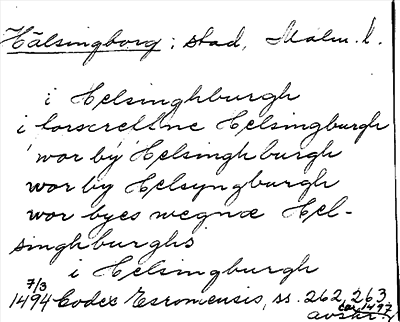 Hälsingborg; stad, Malm. l.
i Helsinghburgh
i forscreffne Helsingburgh
wor by Helsingh burgh
wor by Helsyngburgh
wor byes wegnæ Hel-
singhburghs
i Helsingburgh
7/3
1494 Codex Esromensis, ss. 262, 263
ca. 1497
avskr.